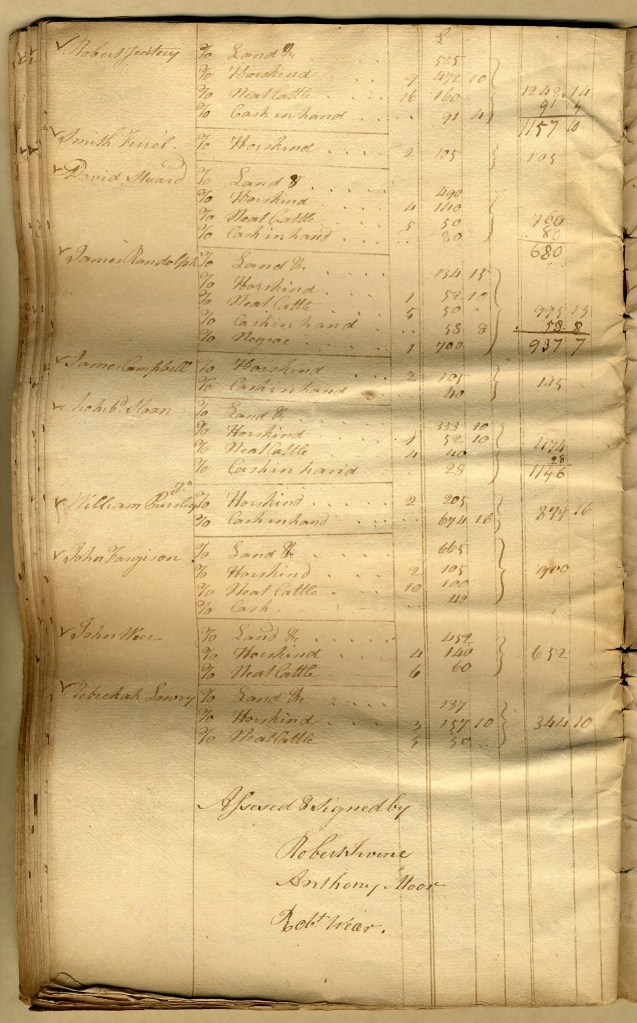 £
Robert To Land &c. 525
To Horskind 9 472 10
To Neat Cattle 16 160 1248 14
To Cash in hand 91 4 91 4
1157 10
Smith To Horskind 2 105 105
David To Land & 490
To Horskind 4 140
To Neat Cattle 5 50 760
To Cash in hand 80 80
680
James Randolph To Land &c. 134 15
To Horskind 1 52 10
To Neat Cattle 5 50 995 15
To Cash in hand 58 8 58 8
To Negroe 1 700 937 7
James Campbell To Horskind 2 105 145
To Cash in hand 40
Sloan To Land &c. 333 10
To Horskind 1 52 10
To Neat Cattle 4 40 474
To Cash in hand 28 28
William To Horskind 2 205 879 16
To Cash in hand 674 16
John Fargison To Land &c. 665
To Horskind 2 105 900
To Neat Cattle 10 100
To Cash 40
John Weer To Land &c. 452
To Horskind 4 140 652
To Neat Cattle 6 60
Rebeckah Lowry To Land &c. 137
To Horskind 3 157 10 344 10
To Neat Cattle 5 50
Assesed & Signed by
Robert Irvine
Anthony Moor
Robt. Wear.